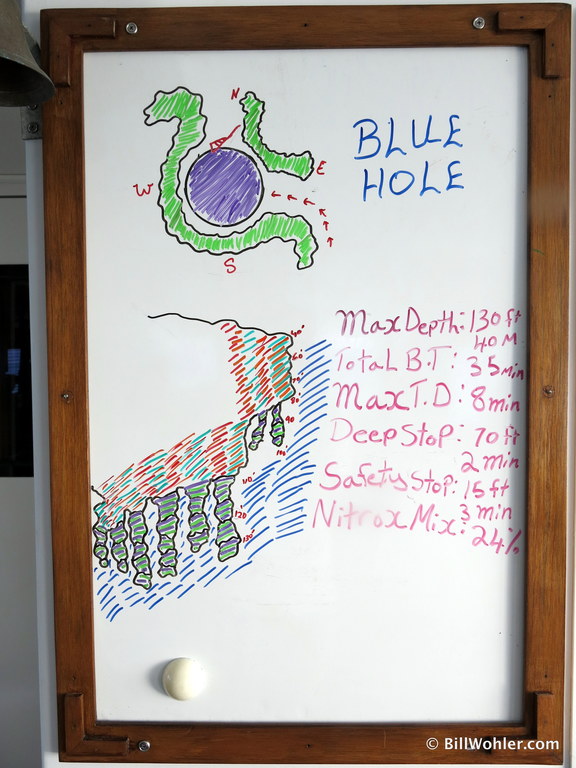 BLUE
HOLE
N
E
W
S
Max Depth: 130 ft
40 M
Total B.T: 35 min
Max T.D: 8 min
Deep Stop: 70 ft
2 min
Safety Stop: 15 ft
3 min
Nitrox Mix: 24%
40'
60'
80'
90'
110'
120'
130'
© BillWohler.com